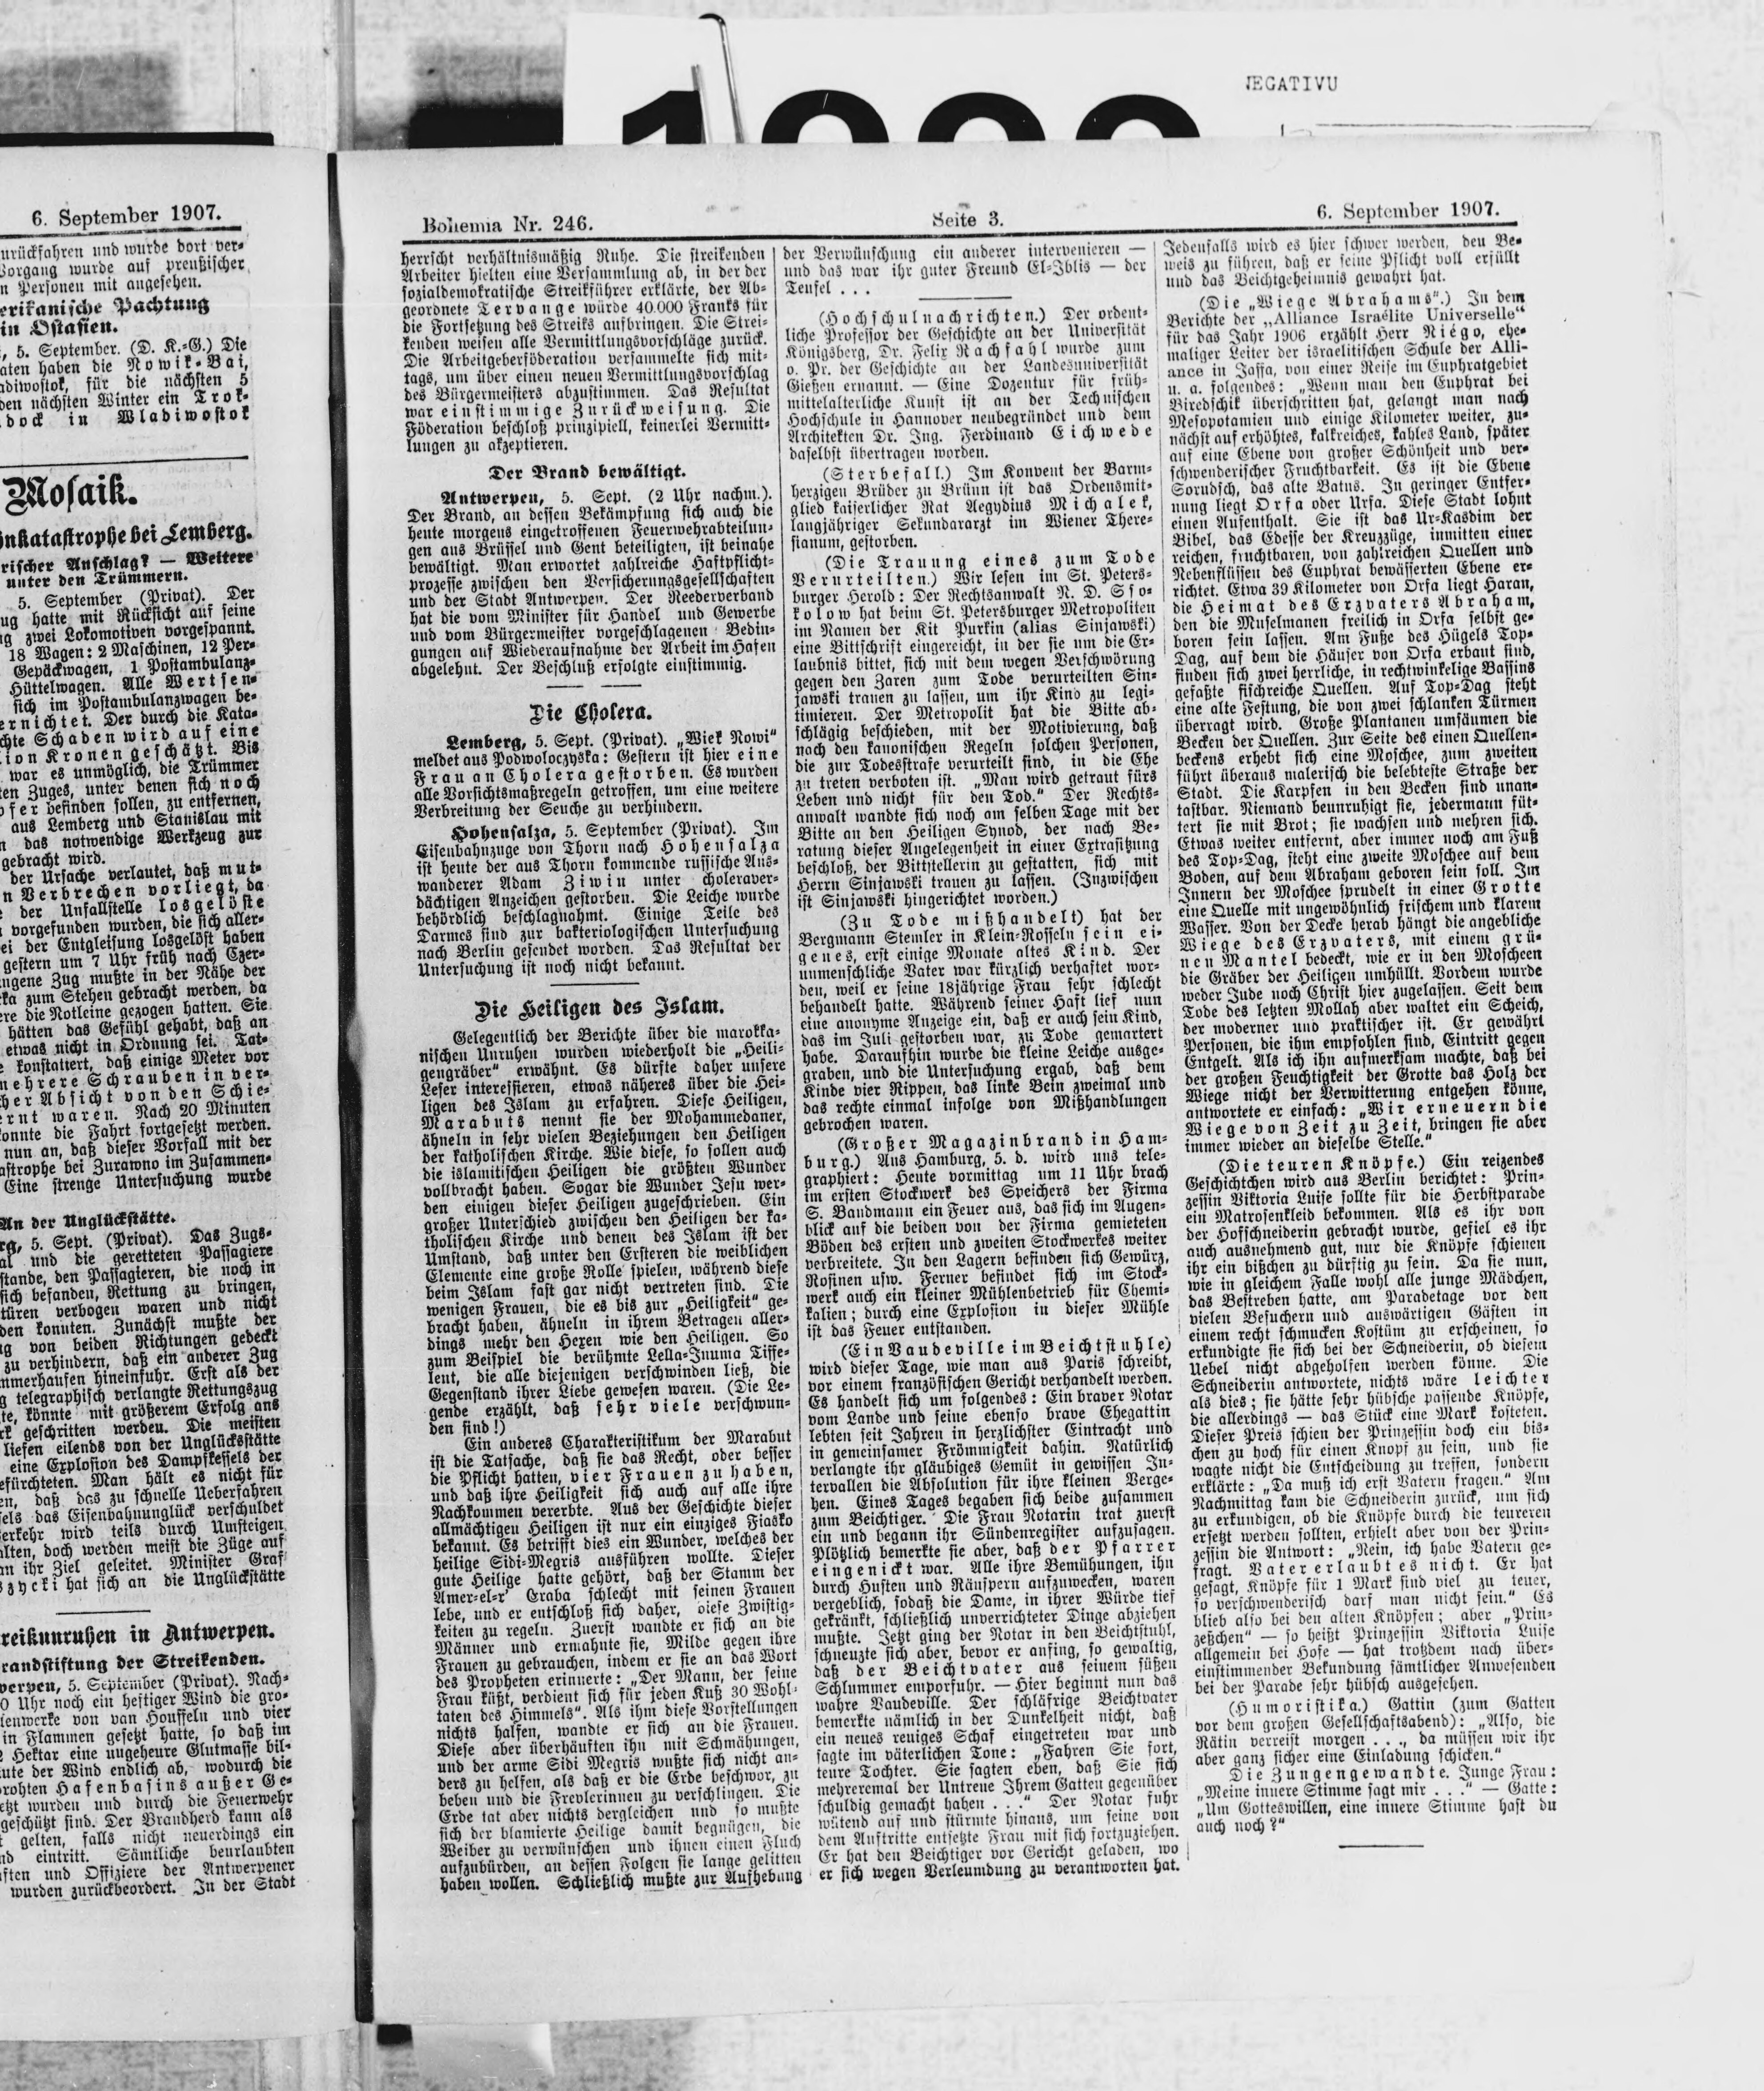 NEGATIVU
6. September 1907.
urückfahren und wurde dort ver-
Vorgang wurde auf preußischer
n Personen mit angesehen.
erikanische Pachtung
in Ostasien.
, 5. September. (D. K.-G.) Die
aten haben die Nowik-Bai,
adiwostok, für die nächsten 5
den nächsten Winter ein Trok-
dock in Wladiwostok
Mosaik.
nkatastrophe bei Lemberg.
rischer Anschlag? — Weitere
unter den Trümmern.
5. September (Privat). Der
ug hatte mit Rücksicht auf seine
ng zwei Lokomotiven vorgespannt.
18 Wagen: 2 Maschinen, 12 Per-
Gepäckwagen, 1 Postambulanz-
Hüttelwagen. Alle Wertsen-
sich im Postambulanzwagen be-
ernichtet. Der durch die Kata-
chte Schaden wird auf eine
ion Kronen geschätzt. Bis
war es unmöglich, die Trümmer
ten Zuges, unter denen sich noch
pfer befinden sollen, zu entfernen,
aus Lemberg und Stanislau mit
n das notwendige Werkzeug zur
gebracht wird.
der Ursache verlautet, daß mut-
n Verbrechen vorliegt, da
der Unfallstelle losgelöste
vorgefunden wurden, die sich aller-
ei der Entgleisung losgelöst haben
gestern um 7 Uhr früh nach Czer-
ngene Zug mußte in der Nähe der
ka zum Stehen gebracht werden, da
ere die Notleine gezogen hatten. Sie
hätten das Gefühl gehabt, daß an
etwas nicht in Ordnung sei. Tat-
konstatiert, daß einige Meter vor
mehrere Schrauben in ver-
cher Absicht von den Schie-
ernt waren. Nach 20 Minuten
onnte die Fahrt fortgesetzt werden.
nun an, daß dieser Vorfall mit der
astrophe bei Zurawno im Zusammen-
Eine strenge Untersuchung wurde
An der Unglückstätte.
rg, 5. Sept. (Privat). Das Zugs-
al und die geretteten Passagiere
stande, den Passagieren, die noch in
sich befanden, Rettung zu bringen,
türen verbogen waren und nicht
den konnten. Zunächst mußte der
g von beiden Richtungen gedeckt
zu verhindern, daß ein anderer Zug
mmerhaufen hineinfuhr. Erst als der
g telegraphisch verlangte Rettungszug
te, könnte mit größerem Erfolg ans
rk geschritten werden. Die meisten
liefen eilends von der Unglücksstätte
eine Explosion des Dampfkessels der
efürchteten. Man hält es nicht für
en, daß das zu schnelle Ueberfahren
sels das Eisenbahnunglück verschuldet
erkehr wird teils durch Umsteigen
alten, doch werden meist die Züge auf
an ihr Ziel geleitet. Minister Graf
zycki hat sich an die Unglückstätte
reikunruhen in Antwerpen.
randstiftung der Streikenden.
werpen, 5. September (Privat). Nach-
0 Uhr noch ein heftiger Wind die gro-
enwerke von van Houffeln und vier
in Flammen gesetzt hatte, so daß im
2 Hektar eine ungeheure Glutmasse bil-
ute der Wind endlich ab, wodurch die
rohten Hafenbasins außer Ge-
etzt wurden und durch die Feuerwehr
geschützt sind. Der Brandherd kann als
gelten, falls nicht neuerdings ein
nd eintritt. Sämtliche beurlaubten
ften und Offiziere der Antwerpener
wurden zurückbeordert. In der Stadt
Bohemia Nr. 246.
Seite 3.
6. September 1907.
herrscht verhältnismäßig Ruhe. Die streikenden
Arbeiter hielten eine Versammlung ab, in der der
sozialdemokratische Streikführer erklärte, der Ab-
geordnete Tervange würde 40.000 Franks für
die Fortsetzung des Streiks aufbringen. Die Strei-
kenden weisen alle Vermittlungsvorschläge zurück.
Die Arbeitgeberföderation versammelte sich mit-
tags, um über einen neuen Vermittlungsvorschlag
des Bürgermeisters abzustimmen. Das Resultat
war einstimmige Zurückweisung. Die
Föderation beschloß prinzipiell, keinerlei Vermitt-
lungen zu akzeptieren.
Der Brand bewältigt.
Antwerpen, 5. Sept. (2 Uhr nachm.).
Der Brand, an dessen Bekämpfung sich auch die
heute morgens eingetroffenen Feuerwehrabteilun-
gen aus Brüssel und Gent beteiligten, ist beinahe
bewältigt. Man erwartet zahlreiche Haftpflicht-
prozesse zwischen den Versicherungsgesellschaften
und der Stadt Antwerpen. Der Reederverband
hat die vom Minister für Handel und Gewerbe
und vom Bürgermeister vorgeschlagenen Bedin-
gungen auf Wiederaufnahme der Arbeit im Hafen
abgelehnt. Der Beschluß erfolgte einstimmig.
Die Cholera.
Lemberg, 5. Sept. (Privat). „Wiek Nowi“
meldet aus Podwoloczyska: Gestern ist hier eine
Frau an Cholera gestorben. Es wurden
alle Vorsichtsmaßregeln getroffen, um eine weitere
Verbreitung der Seuche zu verhindern.
Hohensalza, 5. September (Privat). Im
Eisenbahnzuge von Thorn nach Hohensalza
ist heute der aus Thorn kommende russische Aus-
wanderer Adam Ziwin unter choleraver-
dächtigen Anzeichen gestorben. Die Leiche wurde
behördlich beschlagnahmt. Einige Teile des
Darmes sind zur bakteriologischen Untersuchung
nach Berlin gesendet worden. Das Resultat der
Untersuchung ist noch nicht bekannt.
Die Heiligen des Islam.
Gelegentlich der Berichte über die marokka-
nischen Unruhen wurden wiederholt die „Heili-
gengräber“ erwähnt. Es dürfte daher unsere
Leser interessieren, etwas näheres über die Hei-
ligen des Islam zu erfahren. Diese Heiligen,
Marabuts nennt sie der Mohammedaner,
ähneln in sehr vielen Beziehungen den Heiligen
der katholischen Kirche. Wie diese, so sollen auch
die islamitischen Heiligen die größten Wunder
vollbracht haben. Sogar die Wunder Jesu wer-
den einigen dieser Heiligen zugeschrieben. Ein
großer Unterschied zwischen den Heiligen der ka-
tholischen Kirche und denen des Islam ist der
Umstand, daß unter den Ersteren die weiblichen
Elemente eine große Rolle spielen, während diese
beim Islam fast gar nicht vertreten sind. Die
wenigen Frauen, die es bis zur „Heiligkeit“ ge-
bracht haben, ähneln in ihrem Betragen aller-
dings mehr den Hexen wie den Heiligen. So
zum Beispiel die berühmte Lella-Jnuma Tisse-
leut, die alle diejenigen verschwinden ließ, die
Gegenstand ihrer Liebe gewesen waren. (Die Le-
gende erzählt, daß sehr viele verschwun-
den sind!)
Ein anderes Charakteristikum der Marabut
ist die Tatsache, daß sie das Recht, oder besser
die Pflicht hatten, vier Frauen zu haben,
und daß ihre Heiligkeit sich auch auf alle ihre
Nachkommen vererbte. Aus der Geschichte dieser
allmächtigen Heiligen ist nur ein einziges Fiasko
bekannt. Es betrifft dies ein Wunder, welches der
heilige Sidi-Megris ausführen wollte. Dieser
gute Heilige hatte gehört, daß der Stamm der
Amer-el-r' Eraba schlecht mit seinen Frauen
lebe, und er entschloß sich daher, diese Zwistig-
keiten zu regeln. Zuerst wandte er sich an die
Männer und ermahnte sie, Milde gegen ihre
Frauen zu gebrauchen, indem er sie an das Wort
des Propheten erinnerte: „Der Mann, der seine
Frau küßt, verdient sich für jeden Kuß 30 Wohl-
taten des Himmels“. Als ihm diese Vorstellungen
nichts halfen, wandte er sich an die Frauen.
Diese aber überhäuften ihn mit Schmähungen,
und der arme Sidi Megris wußte sich nicht an-
ders zu helfen, als daß er die Erde beschwor, zu
beben und die Frevlerinnen zu verschlingen. Die
Erde tat aber nichts dergleichen und so mußte
sich der blamierte Heilige damit begnügen, die
Weiber zu verwünschen und ihnen einen Fluch
aufzubürden, an dessen Folgen sie lange gelitten
haben wollen. Schließlich mußte zur Aufhebung
der Verwünschung ein anderer intervenieren —
und das war ihr guter Freund El-Jblis — der
Teufel . . .
(Hochschulnachrichten.) Der ordent-
liche Professor der Geschichte an der Universität
Königsberg, Dr. Felix Rachfahl wurde zum
o. Pr. der Geschichte an der Landesuniversität
Gießen ernannt. — Eine Dozentur für früh-
mittelalterliche Kunst ist an der Technischen
Hochschule in Hannover neubegründet und dem
Architekten Dr. Ing. Ferdinand Eichwede
daselbst übertragen worden.
(Sterbefall.) Im Konvent der Barm-
herzigen Brüder zu Brünn ist das Ordensmit-
glied kaiserlicher Rat Aegydius Michalek,
langjähriger Sekundararzt im Wiener There-
sianum, gestorben.
(Die Trauung eines zum Tode
Verurteilten.) Wir lesen im St. Peters-
burger Herold: Der Rechtsanwalt N. D. Sso-
kolow hat beim St. Petersburger Metropoliten
im Namen der Kit Purkin (alias Sinjawski)
eine Bittschrift eingereicht, in der sie um die Er-
laubnis bittet, sich mit dem wegen Verschwörung
gegen den Zaren zum Tode verurteilten Sin-
jawski trauen zu lassen, um ihr Kind zu legi-
timieren. Der Metropolit hat die Bitte ab-
schlägig beschieden, mit der Motivierung, daß
nach den kanonischen Regeln solchen Personen,
die zur Todesstrafe verurteilt sind, in die Ehe
zu treten verboten ist. „Man wird getraut fürs
Leben und nicht für den Tod.“ Der Rechts-
anwalt wandte sich noch am selben Tage mit der
Bitte an den Heiligen Synod, der nach Be-
ratung dieser Angelegenheit in einer Extrasitzung
beschloß, der Bittstellerin zu gestatten, sich mit
Herrn Sinjawski trauen zu lassen. (Inzwischen
ist Sinjawski hingerichtet worden.)
(Zu Tode mißhandelt) hat der
Bergmann Stemler in Klein-Rosseln sein ei-
genes, erst einige Monate altes Kind. Der
unmenschliche Vater war kürzlich verhaftet wor-
den, weil er seine 18jährige Frau sehr schlecht
behandelt hatte. Während seiner Haft lief nun
eine anonyme Anzeige ein, daß er auch sein Kind,
das im Juli gestorben war, zu Tode gemartert
habe. Daraufhin wurde die kleine Leiche ausge-
graben, und die Untersuchung ergab, daß dem
Kinde vier Rippen, das linke Bein zweimal und
das rechte einmal infolge von Mißhandlungen
gebrochen waren.
(Großer Magazinbrand in Ham-
burg.) Aus Hamburg, 5. d. wird uns tele-
graphiert: Heute vormittag um 11 Uhr brach
im ersten Stockwerk des Speichers der Firma
S. Bandmann ein Feuer aus, das sich im Augen-
blick auf die beiden von der Firma gemieteten
Böden des ersten und zweiten Stockwerkes weiter
verbreitete. In den Lagern befinden sich Gewürz,
Rosinen usw. Ferner befindet sich im Stock-
werk auch ein kleiner Mühlenbetrieb für Chemi-
kalien; durch eine Explosion in dieser Mühle
ist das Feuer entstanden.
(Ein Vaudeville im Beichtstuhle)
wird dieser Tage, wie man aus Paris schreibt,
vor einem französischen Gericht verhandelt werden.
Es handelt sich um folgendes: Ein braver Notar
vom Lande und seine ebenso brave Ehegattin
lebten seit Jahren in herzlichster Eintracht und
in gemeinsamer Frömmigkeit dahin. Natürlich
verlangte ihr gläubiges Gemüt in gewissen In-
tervallen die Absolution für ihre kleinen Verge-
hen. Eines Tages begaben sich beide zusammen
zum Beichtiger. Die Frau Notarin trat zuerst
ein und begann ihr Sündenregister aufzusagen.
Plötzlich bemerkte sie aber, daß der Pfarrer
eingenickt war. Alle ihre Bemühungen, ihn
durch Husten und Räuspern aufzuwecken, waren
vergeblich, sodaß die Dame, in ihrer Würde tief
gekränkt, schließlich unverrichteter Dinge abziehen
mußte. Jetzt ging der Notar in den Beichtstuhl,
schneuzte sich aber, bevor er anfing, so gewaltig,
daß der Beichtvater aus seinem süßen
Schlummer emporfuhr. — Hier beginnt nun das
wahre Vaudeville. Der schläfrige Beichtvater
bemerkte nämlich in der Dunkelheit nicht, daß
ein neues reuiges Schaf eingetreten war und
sagte im väterlichen Tone: „Fahren Sie fort,
teure Tochter. Sie sagten eben, daß Sie sich
mehreremal der Untreue Ihrem Gatten gegenüber
schuldig gemacht haben . . .“ Der Notar fuhr
wütend auf und stürmte hinaus, um seine von
dem Auftritte entsetzte Frau mit sich fortzuziehen.
Er hat den Beichtiger vor Gericht geladen, wo
er sich wegen Verleumdung zu verantworten hat.
Jedenfalls wird es hier schwer werden, den Be-
weis zu führen, daß er seine Pflicht voll erfüllt
und das Beichtgeheimnis gewahrt hat.
(Die „Wiege Abrahams“.) In dem
Berichte der „Alliance Israélite Universelle“
für das Jahr 1906 erzählt Herr Niégo, ehe-
maliger Leiter der israelitischen Schule der Alli-
ance in Jaffa, von einer Reise im Euphratgebiet
u. a. folgendes: „Wenn man den Euphrat bei
Biredschik überschritten hat, gelangt man nach
Mesopotamien und einige Kilometer weiter, zu-
nächst auf erhöhtes, kalkreiches, kahles Land, später
auf eine Ebene von großer Schönheit und ver-
schwenderischer Fruchtbarkeit. Es ist die Ebene
Sorudsch, das alte Batus. In geringer Entfer-
nung liegt Orfa oder Ursa. Diese Stadt lohnt
einen Aufenthalt. Sie ist das Ur-Kasdim der
Bibel, das Edesse der Kreuzzüge, inmitten einer
reichen, fruchtbaren, von zahlreichen Quellen und
Nebenflüssen des Euphrat bewässerten Ebene er-
richtet. Etwa 39 Kilometer von Orfa liegt Haran,
die Heimat des Erzvaters Abraham,
den die Muselmanen freilich in Orfa selbst ge-
boren sein lassen. Am Fuße des Hügels Top-
Dag, auf dem die Häuser von Orfa erbaut sind,
finden sich zwei herrliche, in rechtwinkelige Bassins
gefaßte fischreiche Quellen. Auf Top-Dag steht
eine alte Festung, die von zwei schlanken Türmen
überragt wird. Große Plantanen umsäumen die
Becken der Quellen. Zur Seite des einen Quellen-
beckens erhebt sich eine Moschee, zum zweiten
führt überaus malerisch die belebteste Straße der
Stadt. Die Karpfen in den Becken sind unan-
tastbar. Niemand beunruhigt sie, jedermann füt-
tert sie mit Brot; sie wachsen und mehren sich.
Etwas weiter entfernt, aber immer noch am Fuß
des Top-Dag, steht eine zweite Moschee auf dem
Boden, auf dem Abraham geboren sein soll. Im
Innern der Moschee sprudelt in einer Grotte
eine Quelle mit ungewöhnlich frischem und klarem
Wasser. Von der Decke herab hängt die angebliche
Wiege des Erzvaters, mit einem grü-
nen Mantel bedeckt, wie er in den Moscheen
die Gräber der Heiligen umhüllt. Vordem wurde
weder Jude noch Christ hier zugelassen. Seit dem
Tode des letzten Mollah aber waltet ein Scheich,
der moderner und praktischer ist. Er gewährt
Personen, die ihm empfohlen sind, Eintritt gegen
Entgelt. Als ich ihn aufmerksam machte, daß bei
der großen Feuchtigkeit der Grotte das Holz der
Wiege nicht der Verwitterung entgehen könne,
antwortete er einfach: „Wir erneuern die
Wiege von Zeit zu Zeit, bringen sie aber
immer wieder an dieselbe Stelle.“
(Die teuren Knöpfe.) Ein reizendes
Geschichtchen wird aus Berlin berichtet: Prin-
zessin Viktoria Luise sollte für die Herbstparade
ein Matrosenkleid bekommen. Als es ihr von
der Hofschneiderin gebracht wurde, gefiel es ihr
auch ausnehmend gut, nur die Knöpfe schienen
ihr ein bißchen zu dürftig zu sein. Da sie nun,
wie in gleichem Falle wohl alle junge Mädchen,
das Bestreben hatte, am Paradetage vor den
vielen Besuchern und auswärtigen Gästen in
einem recht schmucken Kostüm zu erscheinen, so
erkundigte sie sich bei der Schneiderin, ob diesem
Uebel nicht abgeholfen werden könne. Die
Schneiderin antwortete, nichts wäre leichter
als dies; sie hätte sehr hübsche passende Knöpfe,
die allerdings — das Stück eine Mark kosteten.
Dieser Preis schien der Prinzessin doch ein bis-
chen zu hoch für einen Knopf zu sein, und sie
wagte nicht die Entscheidung zu treffen, sondern
erklärte: „Da muß ich erst Vatern fragen.“ Am
Nachmittag kam die Schneiderin zurück, um sich
zu erkundigen, ob die Knöpfe durch die teureren
ersetzt werden sollten, erhielt aber von der Prin-
zessin die Antwort: „Nein, ich habe Vatern ge-
fragt. Vater erlaubt es nicht. Er hat
gesagt, Knöpfe für 1 Mark sind viel zu teuer,
so verschwenderisch darf man nicht sein.“ Es
blieb also bei den alten Knöpfen; aber „Prin-
zeßchen“ — so heißt Prinzessin Viktoria Luise
allgemein bei Hofe — hat trotzdem nach über-
einstimmender Bekundung sämtlicher Anwesenden
bei der Parade sehr hübsch ausgesehen.
(Humoristika.) Gattin (zum Gatten
vor dem großen Gesellschaftsabend): „Also, die
Rätin verreist morgen . . ., da müssen wir ihr
aber ganz sicher eine Einladung schicken.“
Die Zungengewandte. Junge Frau:
„Meine innere Stimme sagt mir . . .“ — Gatte:
„Um Gotteswillen, eine innere Stimme hast du
auch noch?“